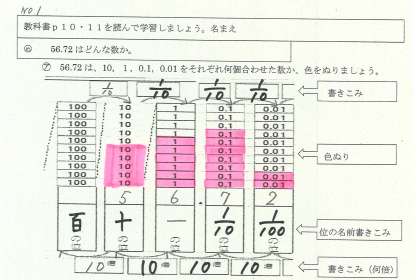 NO1
教科書p10・11を読んで学習しましょう。名まえ
め 56.72はどんな数か。
ア 56.72は、10, 1, 0.1, 0.01をそれぞれ何個合わせた数か、色をぬりましょう。
1/10 1/10 1/10 1/10 書きこみ
100 10 1 0.1 0.01
100 10 1 0.1 0.01
100 10 1 0.1 0.01
100 10 1 0.1 0.01
100 10 1 0.1 0.01
100 10 1 0.1 0.01
100 10 1 0.1 0.01
100 10 1 0.1 0.01
100 10 1 0.1 0.01
100 10 1 0.1 0.01
色ぬり
5 6 . 7 2
百 十 一 1/10 1/100
の位 の位 の位 の位 の位
位の名前書きこみ
10倍 10倍 10倍 10倍 書きこみ(何倍)